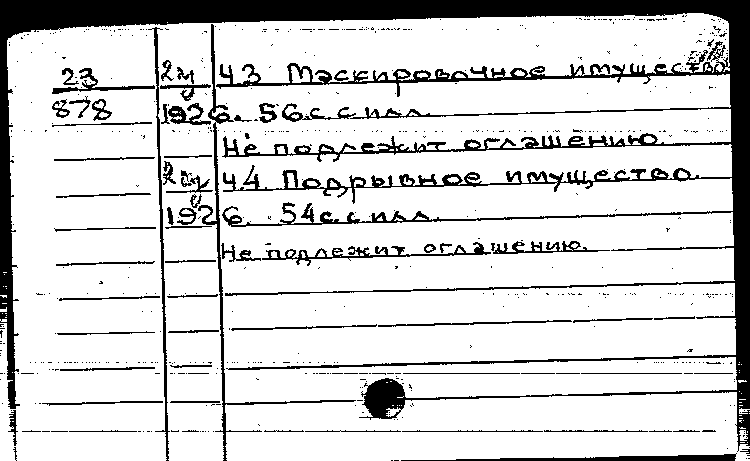 23 2 экз Ч 3 Маскировочное имущество.
878 1926. 56 с. с илл.
Не подлежит оглашению.
2 экз Ч 4. Подрывное имущество.
1926. 54 с. с илл.
Не подлежит оглашению.